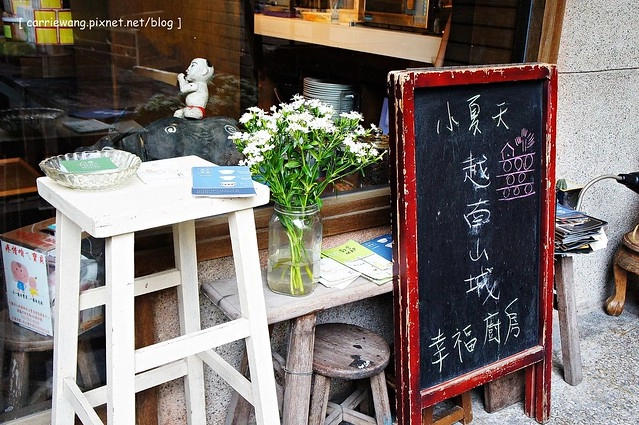 [ carriewang.pixnet.net/blog ]
小夏天
越南山城
幸福廚房